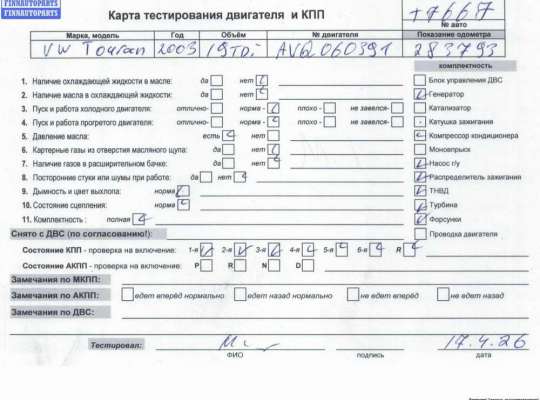 FINNAUTOPARTS
FINNAUTOPARTS
Карта тестирования двигателя и КПП
+7667
№ авто
Марка, модель Год Объём № двигателя Показание одометра
VW Touran 2003 1,9TDi AVQ060391 283793
комплектность
1. Наличие охлаждающей жидкости в масле: да нет
2. Наличие масла в охлаждающей жидкости: да нет
3. Пуск и работа холодного двигателя: отлично- норма - плохо - не завелся-
4. Пуск и работа прогретого двигателя: отлично- норма - плохо - не завелся-
5. Давление масла: есть нет
6. Картерные газы из отверстия масляного щупа: да нет
7. Наличие газов в расширительном бачке: да нет
8. Посторонние стуки или шумы при работе: да нет
9. Дымность и цвет выхлопа: норма
10. Состояние сцепления: норма
11. Комплектность : полная
Блок управления ДВС
Генератор
Катализатор
Катушка зажигания
Компрессор кондиционера
Моновпрыск
Насос г/у
Распределитель зажигания
ТНВД
Турбина
Форсунки
Проводка двигателя
Снято с ДВС (по согласованию!):
Состояние КПП - проверка на включение: 1-я 2-я 3-я 4-я 5-я 6-я R
Состояние АКПП - проверка на включение: P R N D
Замечания по МКПП:
Замечания по АКПП: едет вперёд нормально едет назад нормально не едет вперёд не едет назад
Замечания по ДВС:
Тестировал: 17.4.26
ФИО подпись дата